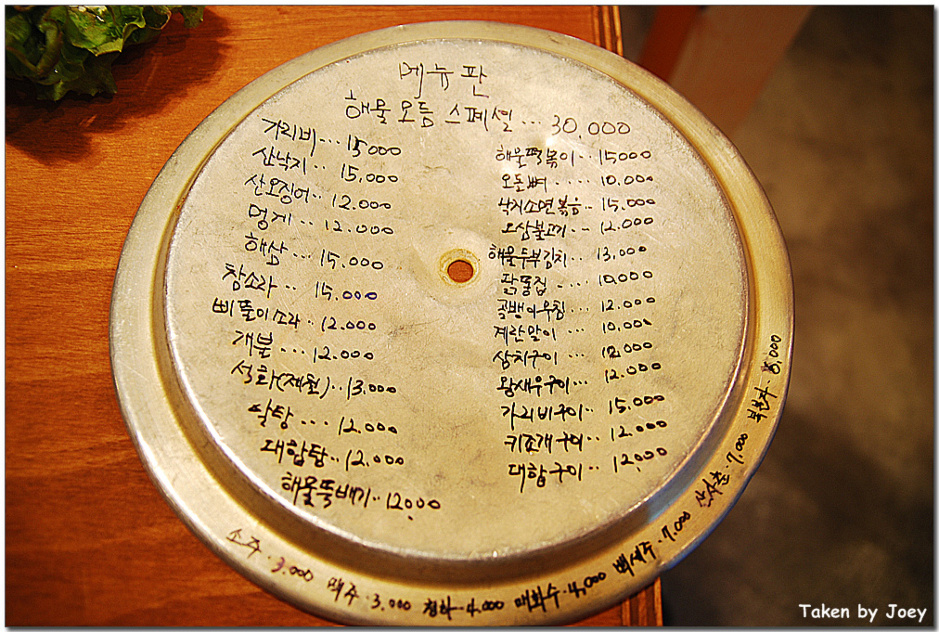 메뉴판
해물모듬 스페셜 ... 30,000
가리비 ... 15000
산낙지 .. 15,000
산오징어 .. 12.000
멍게 .. 12.000
해삼 ... 15,000
참소라 .. 15,000
삐뚤이소라 .. 12.000
개불 .... 12.000
석화(제철) .. 13,000
알탕 ... 12.000
대합탕 .. 12.000
해물뚝배기 .. 12000
해물떡볶이 .. 15000
오돌뼈 ..... 10.000
낙지소면볶음 .. 15.000
오삼불고기 .. 12.000
해물두부김치 ... 13,000
닭똥집 .... 10.000
골뱅이무침 ... 12.000
계란말이 ... 10.000
삼치구이 ...
왕새우구이 ... 12.000
가리비구이 .. 15.000
키조개구이 .. 12.000
대합구이 .. 12,000
소주 . 3.000 맥주 . 3.000 청하 . 4.000 매화수 . 4,000 백세주 . 7.000 산사춘 . 7.000 복분자 . 8,000
Taken by Joey